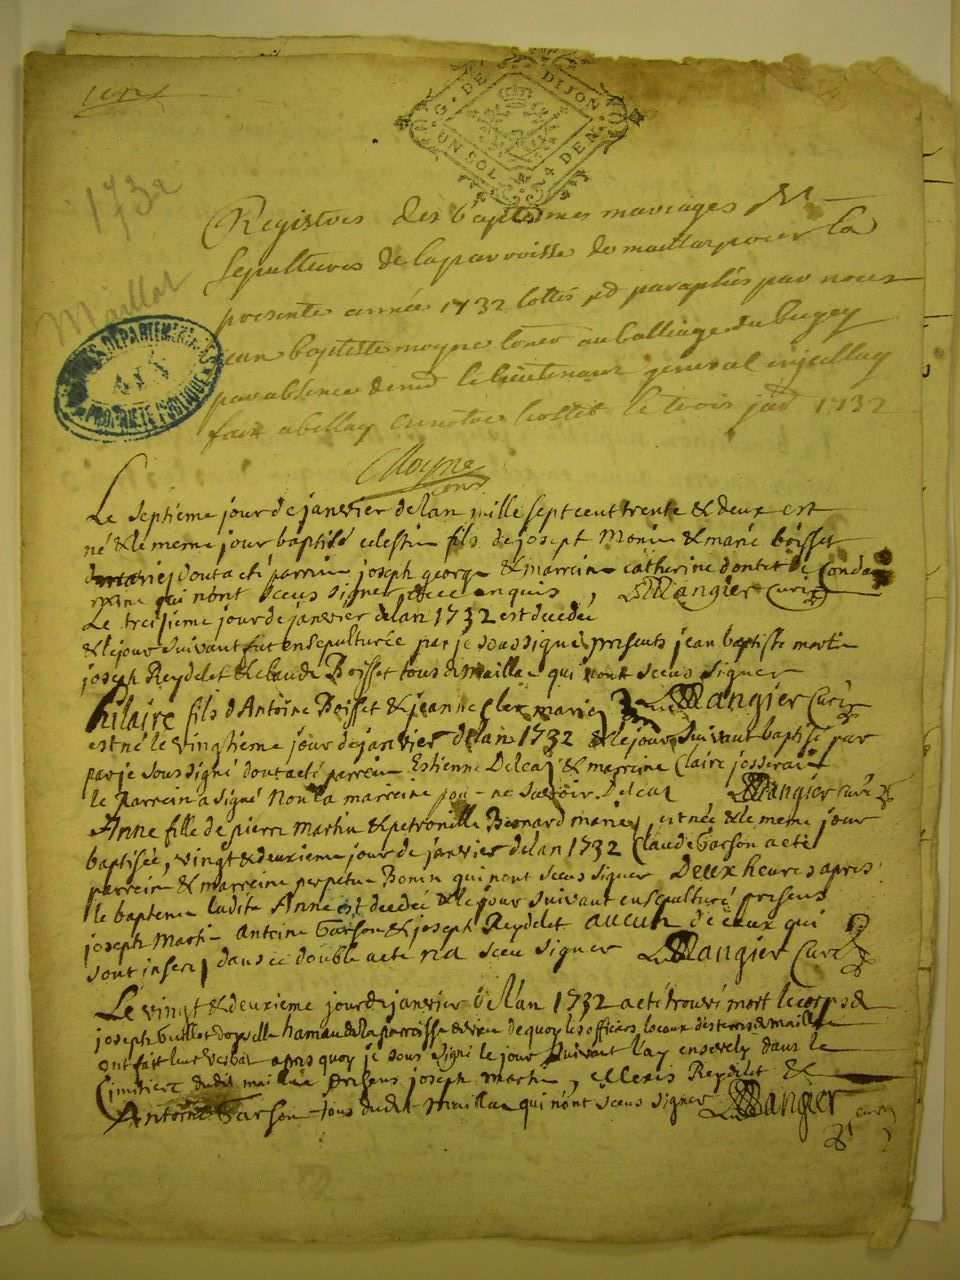 G. DE DIJON
UN SOL 4 DEN
1er
1732
Maillat
Registres des baptesmes mariages &
sepultures de la parroisse de maillat pour la
presente année 1732 cottés et paraphés par nous
jean baptiste moyne au balliage du bugey
par absence de le lieutenant general
fait a bellay hostel le trois 1732
Moyne
ARCHIVES DEPARTEMENTALES
AIN
PROPRIETE PUBLIQUE
Le septieme jour de janvier de l'an mille sept cent trente & deux est
né & le meme jour baptisé celestin fils de josept Monin & marie boisset
mariej dont a eté parrein joseph george & marreine catherine
qui n'ont sceus signer enquis, Mangier Curé
Le treisieme jour de janvier de lan 1732 est decedé
& le jour suivant fut ensepulturée par je soussigné presents jean baptiste martin
joseph Reydelet & claude Boisset tous de maillac qui n'ont sceus signer
hilaire fils d'Antoine Boisset & jeanne mariej Mangier Curé
est né le vingtieme jour de janvier de lan 1732 & le jour suivant baptisé par
par je sous signé dont a eté parrein Estienne Delcaz & marreine Claire josserand
le parrein a signé non la marreine pour ne savoir Delcaz Mangier Curé
Anne fille de pierre Martin & petronille Bernard mariej, est née & le meme jour
baptisée, vingt & deuxieme jour de janvier de lan 1732 Claude Garson a eté
parrein & marreine perpetue Bonin qui n'ont sceus signer Deux heures apres
le bapteme ladite Anne est decedée & le jour suivant ensepulturé presens
joseph Martin Antoine Garson & joseph Reydelet aucun de ceux qui
sont inserej dans ce double acte n'a sceu signer Mangier Curé
Le vingt & deuxieme jour de janvier de l'an 1732 a eté trouvé mort le corps de
joseph Guillot hamau de la parroisse de quoy les officiers locaux de maillac
ont fait leur verbal apres quoy je sous signé le jour suivant l'ay ensevely dans le
Cimitiere dudit maillac presens joseph martin, Alexis Reydelet &
Antoine Garson tous dudit Maillac qui n'ont sceus signer Mangier curé